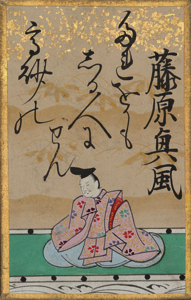 藤原興風
たれをかも
しる人に
せん
高砂の